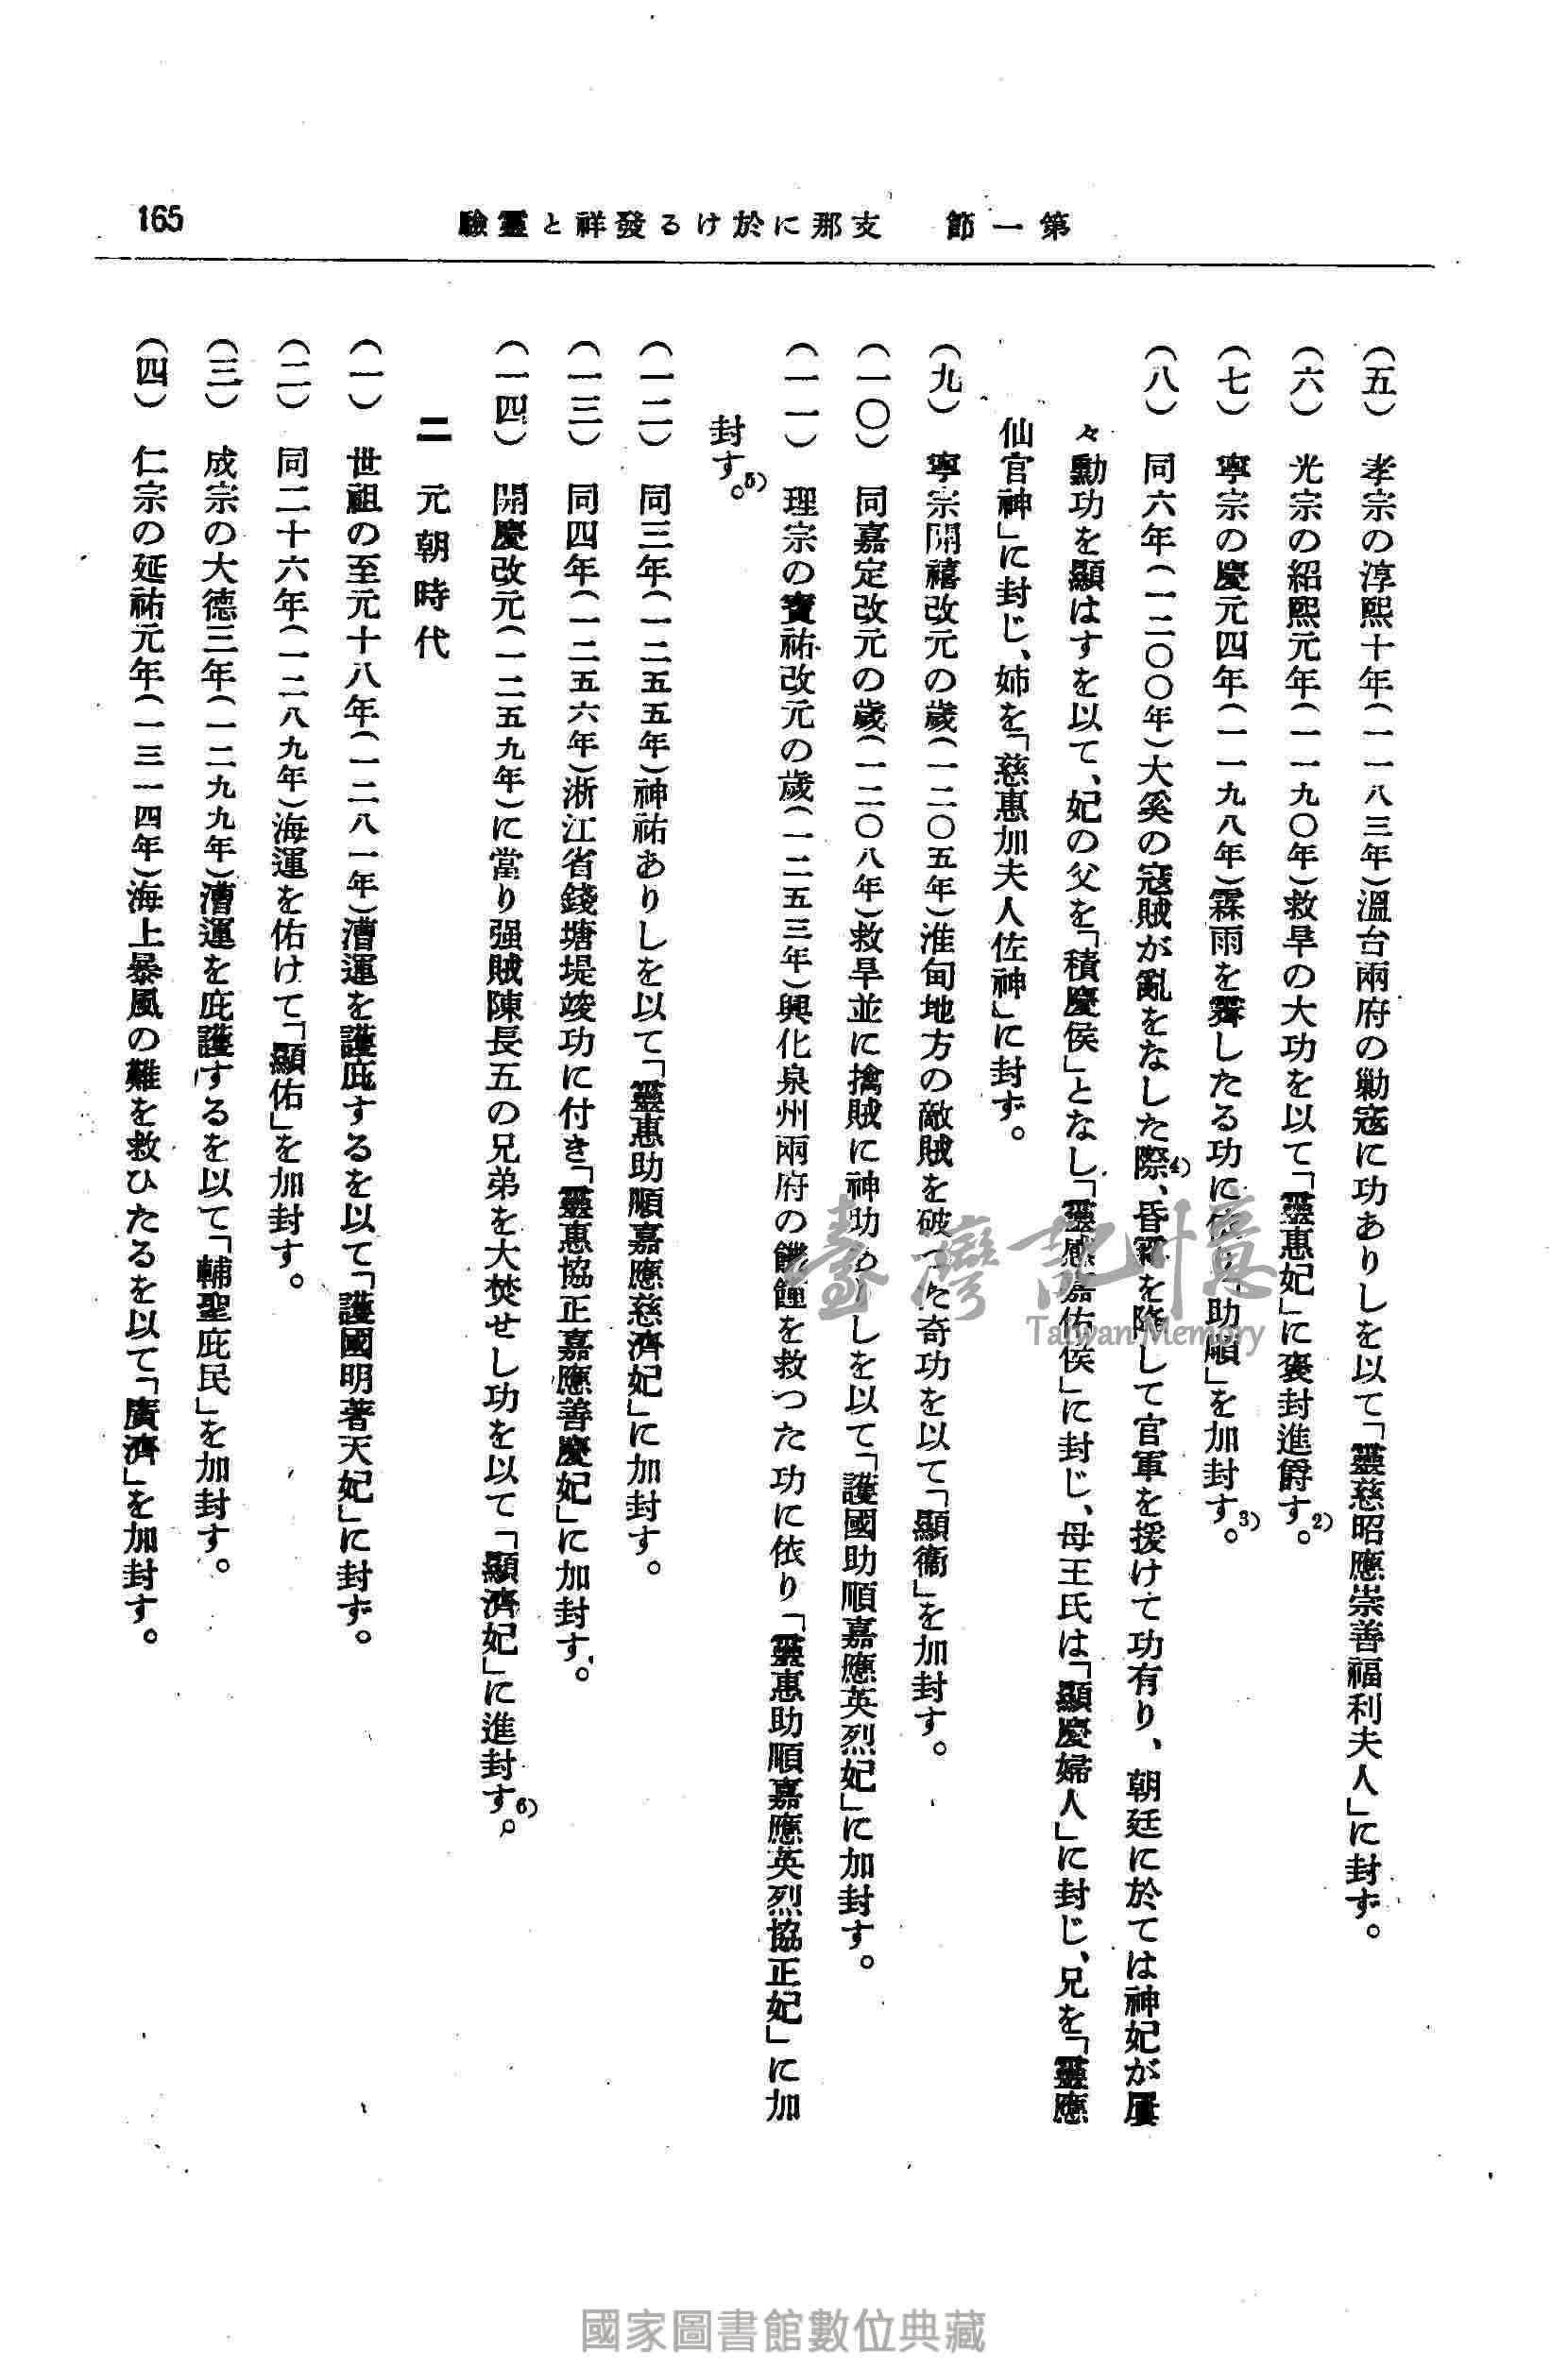 第一節　支那に於ける發祥と靈驗
165
（五）　孝宗の淳熙十年（一一八三年）溫台兩府の勦寇に功ありしを以て「靈慈昭應崇善福利夫人」に封ず。
（六）　光宗の紹熙元年（一一九〇年）救旱の大功を以て「靈惠妃」に褒封進爵す。2)
（七）　寧宗の慶元四年（一一九八年）霖雨を霽したる功に　助順」を加封す。3)
（八）　同六年（一二〇〇年）大奚の寇賊が亂をなした際、4)昏霧を降して官軍を援けて功有り、朝廷に於ては神妃が屢
々勳功を顯はすを以て、妃の父を「積慶侯」となし「靈感嘉佑侯」に封じ、母王氏は「顯慶婦人」に封じ、兄を「靈應
仙官神」に封じ、姉を「慈惠加夫人佐神」に封ず。
（九）　寧宗開禧改元の歲（一二〇五年）淮甸地方の敵賊を破つた奇功を以て「顯衞」を加封す。
（一〇）　同嘉定改元の歲（一二〇八年）救旱並に擒賊に神助ありしを以て「護國助順嘉應英烈妃」に加封す。
（一一）　理宗の寶祐改元の歲（一二五三年）興化泉州兩府の饑饉を救つた功に依り「靈惠助順嘉應英烈協正妃」に加
封す。5)
（一二）　同三年（一二五五年）神祐ありしを以て「靈惠助順嘉應慈濟妃」に加封す。
（一三）　同四年（一二五六年）浙江省錢塘堤竣功に付き「靈惠協正嘉應善慶妃」に加封す。
（一四）　開慶改元（一二五九年）に當り强賊陳長五の兄弟を大焚せし功を以て「顯濟妃」に進封す。6)
二　元朝時代
（一）　世祖の至元十八年（一二八一年）漕運を護庇するを以て「護國明著天妃」に封ず。
（二）　同二十六年（一二八九年）海運を佑けて「顯佑」を加封す。
（三）　成宗の大德三年（一二九九年）漕運を庇護するを以て「輔聖庇民」を加封す。
（四）　仁宗の延祐元年（一三一四年）海上暴風の難を救ひたるを以て「廣濟」を加封す。
臺灣記憶
Taiwan Memory
國家圖書館數位典藏